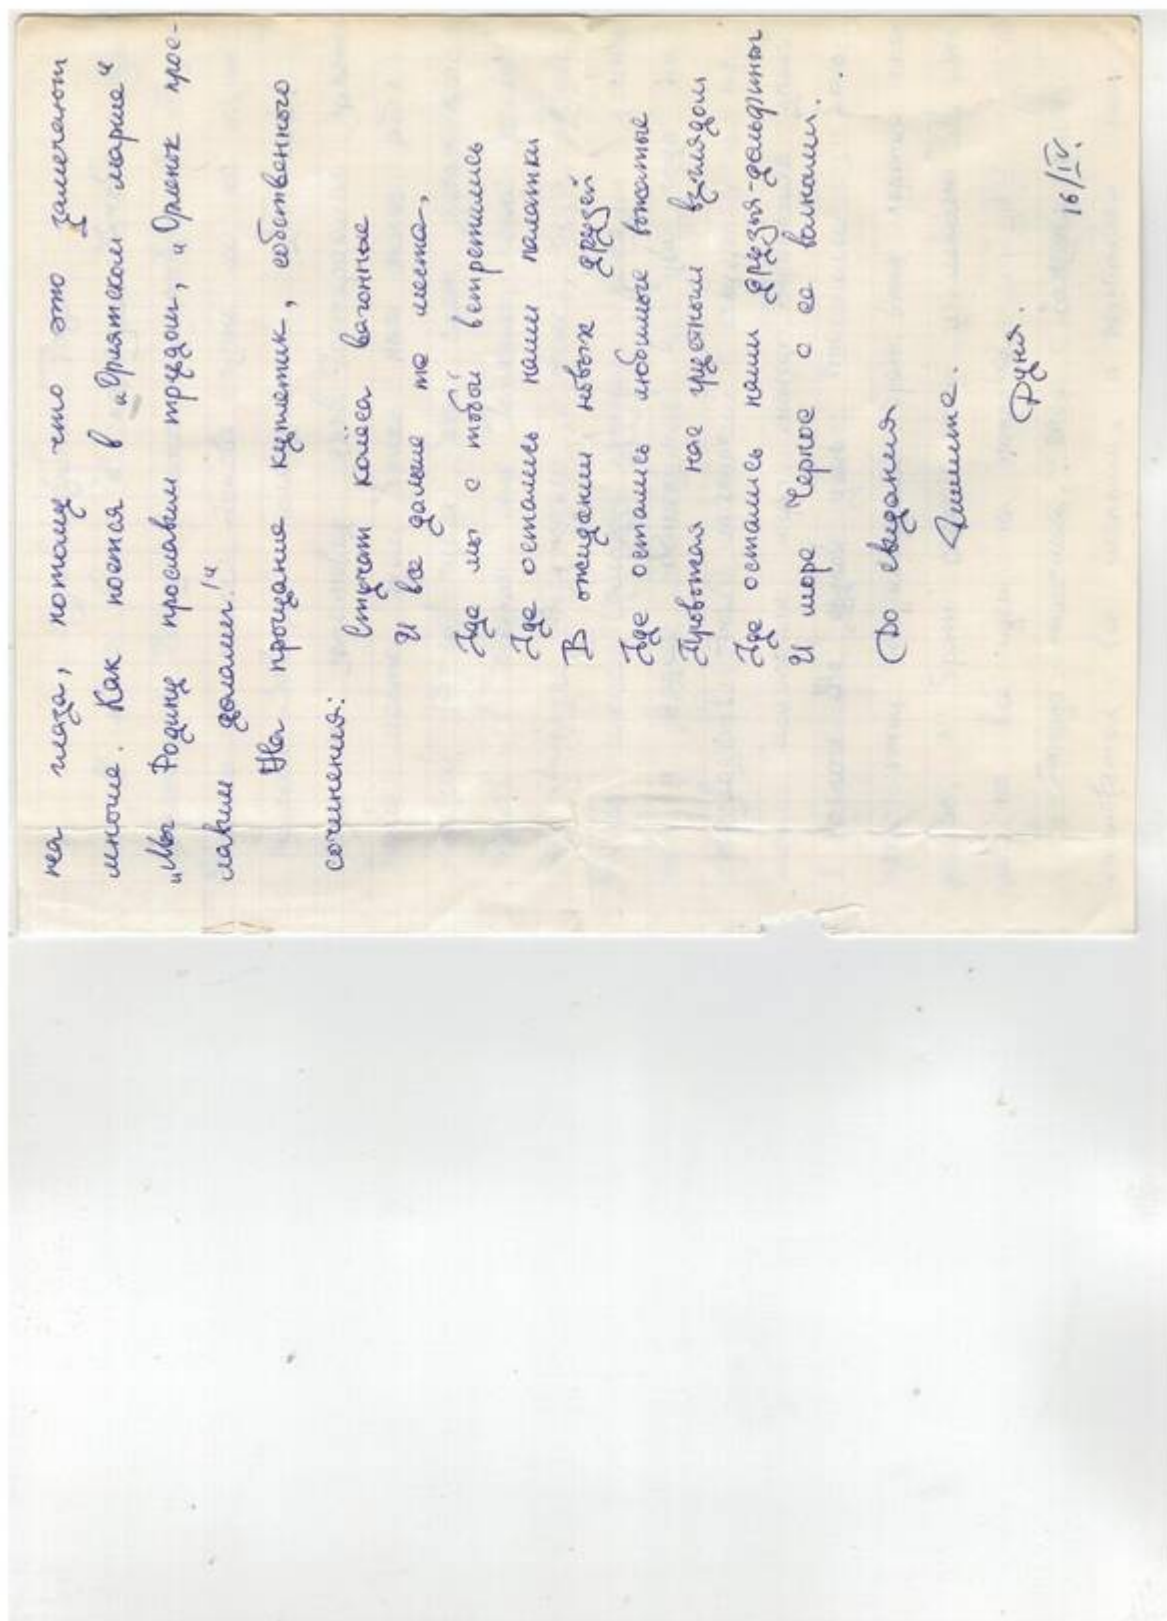 на глаза, потому что это замечают
многие. Как поется в „Орлятском марше“
„Мы Родину прославим трудом, „Орленок прос-
лавим делами!“
На прощание куплетик, собственного
сочинения:
Стучат колёса вагонные
И все дальше те места,
Где мы с тобой встретились
Где остались наши палатки
В ожидании новых друзей
Где остались любимые вожатые
Провожая нас грустным взглядом
Где остались наши друзья-дельфины
И море Черное с ее волнами.
До свидания
Пишите.
16/IV.